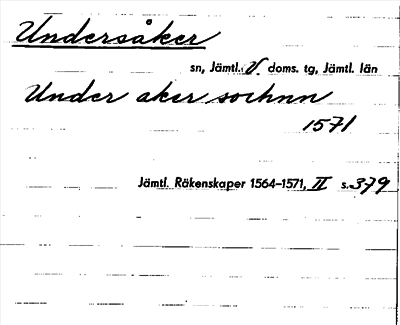 Undersåker
sn, Jämtl. V. doms. tg, Jämtl. län
Under aker sochnn
1571
Jämtl. Räkenskaper 1564–1571, II s. 379